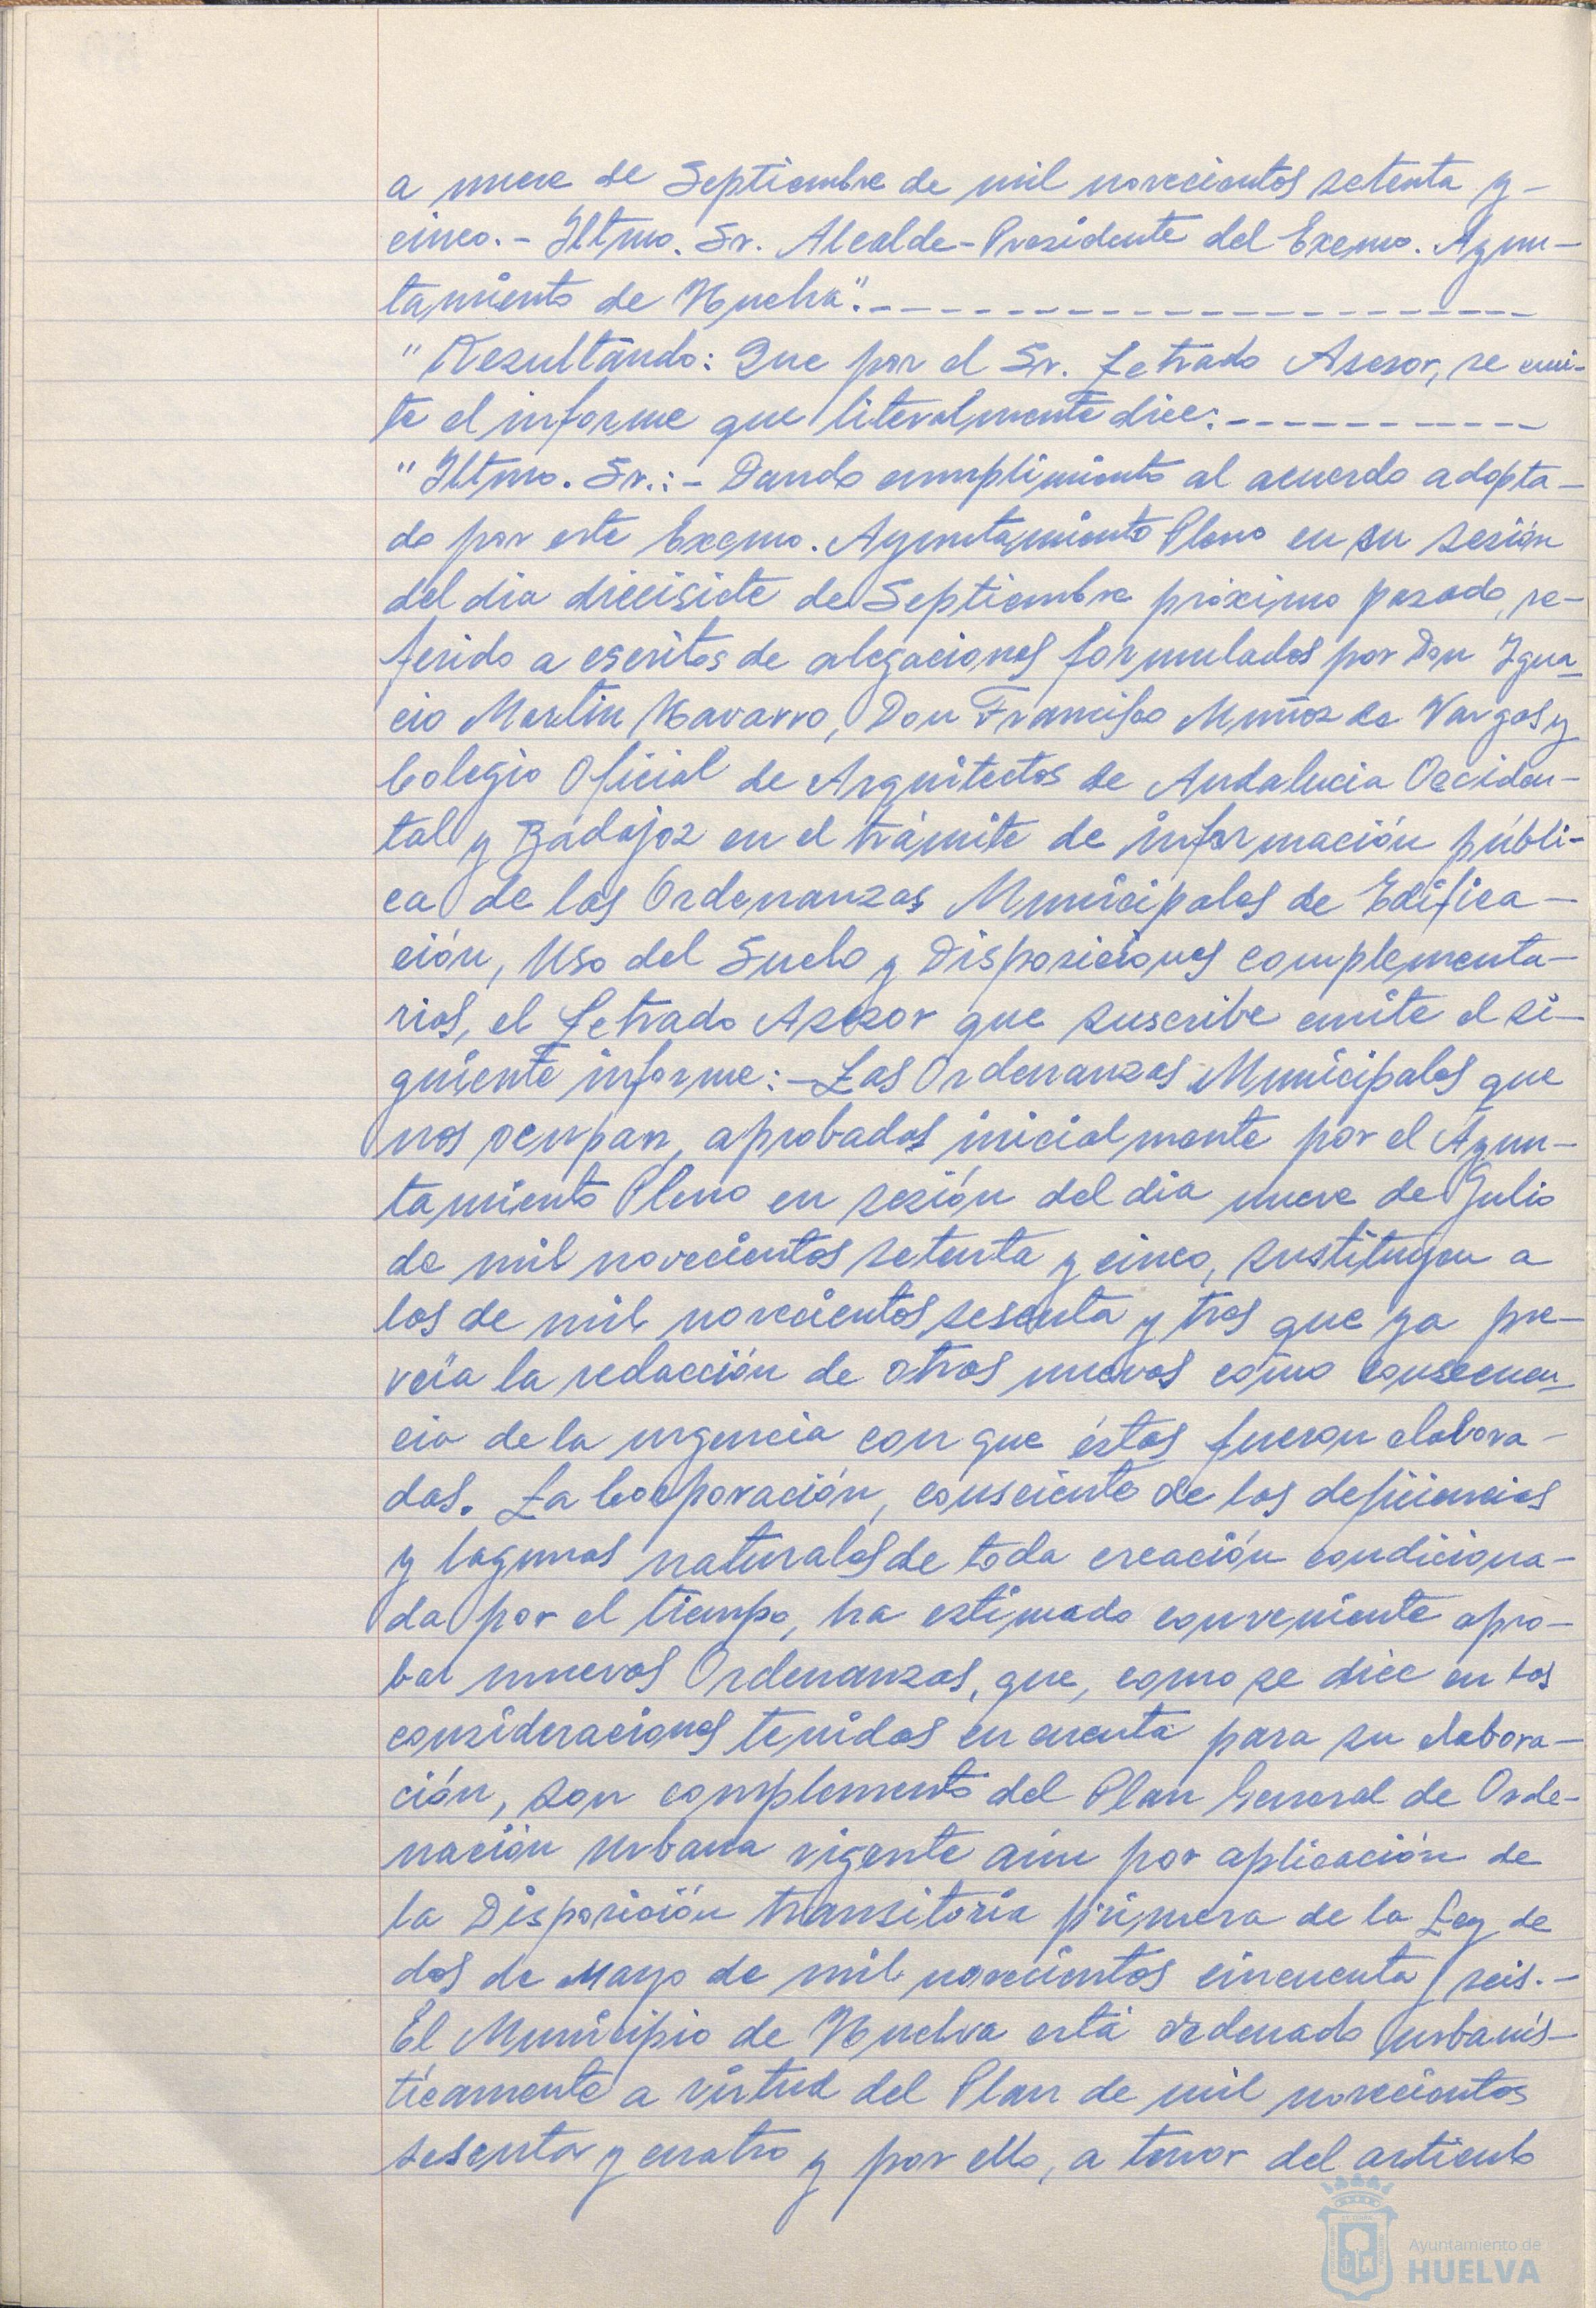 a nueve de Septiembre de mil novecientos setenta y -
cinco. - Iltmo. Sr. Alcalde-Presidente del Excmo. Ayun-
tamiento de Huelva". - - - - - - - - - - - - - - - - - - - - - -
"Resultando: Que por el Sr. Letrado Asesor, se emi-
te el informe que literalmente dice: - - - - - - - - - - -
"Iltmo. Sr.: - Dando cumplimiento al acuerdo adopta-
do por este Excmo. Ayuntamiento Pleno en su sesión
del dia diecisiete de Septiembre próximo pasado, re-
ferido a escritos de alegaciones formulados por Don Igna-
cio Martin Navarro, Don Francisco Muñoz de Vargas y
Colegio Oficial de Arquitectos de Andalucia Occiden-
tal y Badajoz en el trámite de información públi-
ca de las Ordenanzas Municipales de Edifica-
ción, Uso del Suelo y Disposiciones complementa-
rias, el Letrado Asesor que suscribe emite el si-
guiente informe: - Las Ordenanzas Municipales que
nos ocupan, aprobadas inicialmente por el Ayun-
tamiento Pleno en sesión del dia nueve de Julio
de mil novecientos setenta y cinco, sustituyen a
las de mil novecientos sesenta y tres que ya pre-
veía la redacción de otras nuevas como consecuen-
cia de la urgencia con que éstas fueron elabora-
das. La Corporación, consciente de las deficiencias
y lagunas naturales de toda creación condiciona-
da por el tiempo, ha estimado conveniente apro-
bar nuevas Ordenanzas, que, como se dice en las
consideraciones tenidas en cuenta para su elabora-
ción, son complemento del Plan General de Orde-
nación Urbana vigente aún por aplicación de
la Disposición transitoria primera de la Ley de
dos de Mayo de mil novecientos cincuenta y seis. -
El Municipio de Huelva está ordenado urbanís-
ticamente a virtud del Plan de mil novecientos
sesenta y cuatro y por ello, a tenor del articulo
Ayuntamiento de
HUELVA